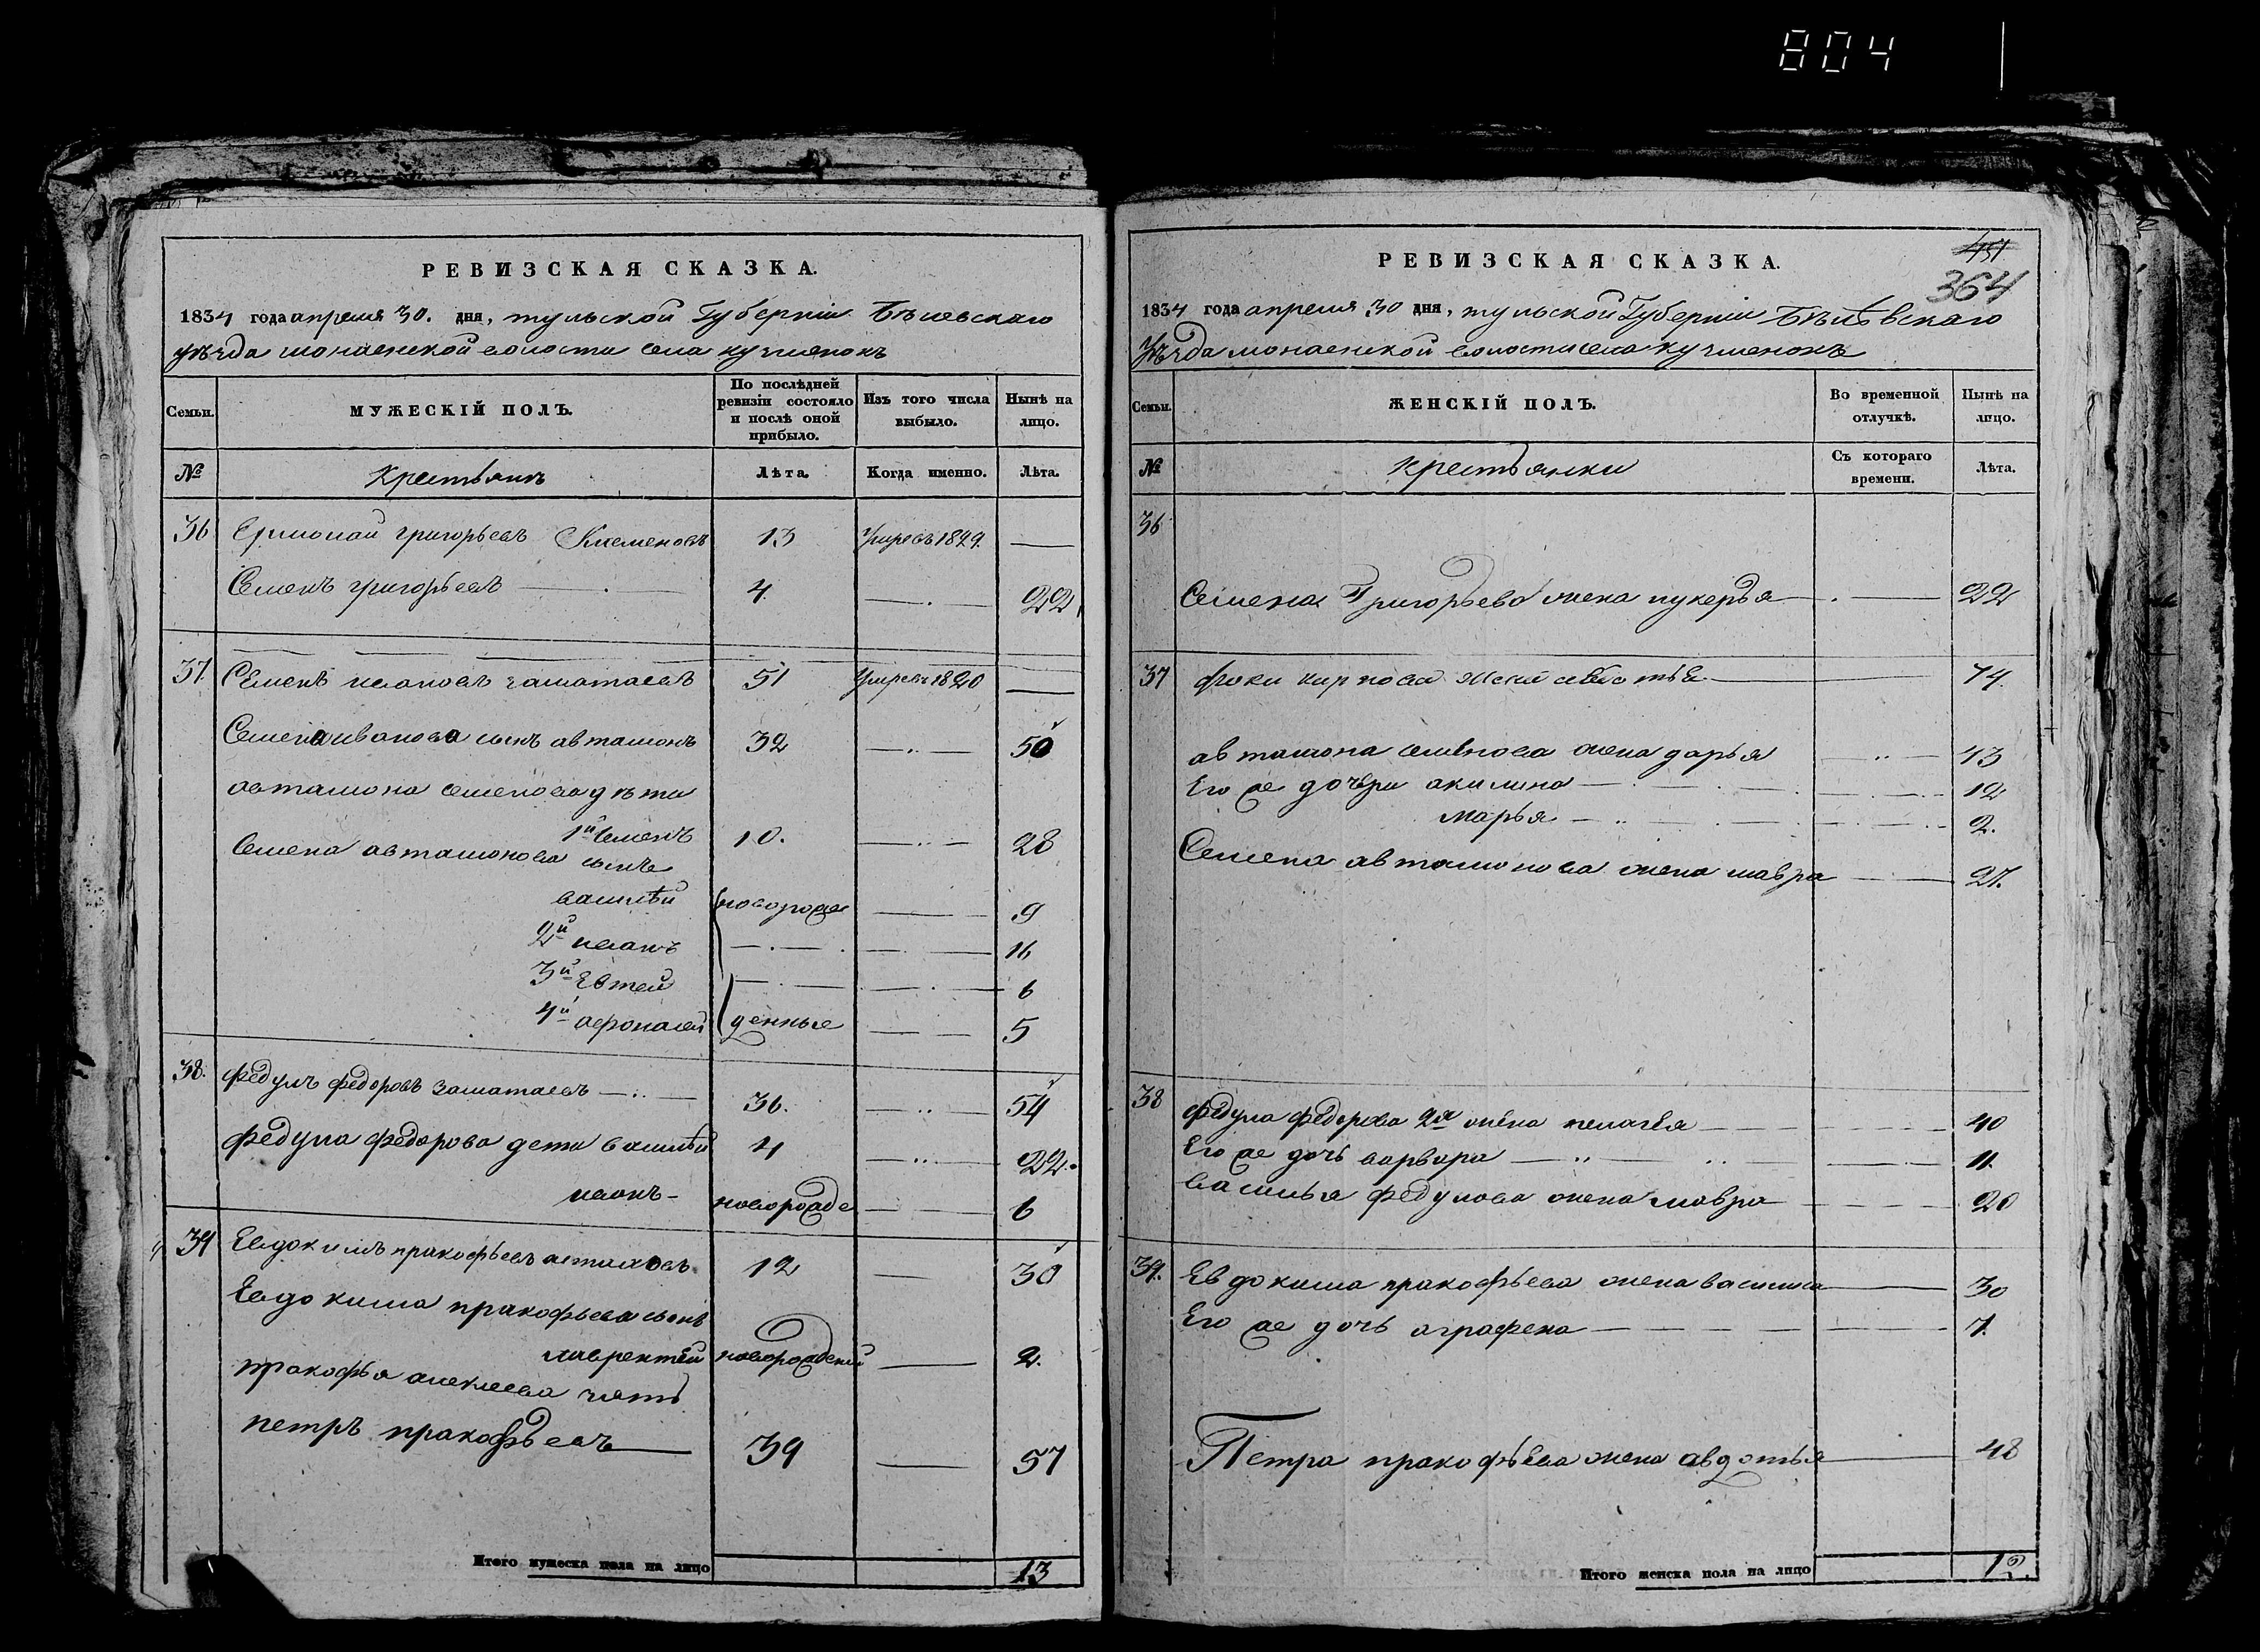 804
РЕВИЗСКАЯ СКАЗКА.
1834 года апреля 30. дня, тульской Губернiи Бѣлевскаго
уѣзда монаенской волости села кучменокъ
Семьи.
МУЖЕСКIЙ ПОЛЪ.
По послѣдней ревизiи состояло и послѣ оной прибыло.
Изъ того числа выбыло.
Нынѣ на лицо.
№
Крестьянъ
Лѣта.
Когда именно.
Лѣта.
36 Ермолай григорьевъ 13 Умревъ 1829. —
Семенъ григорьевъ — 4. — 22
37. Семенъ ивановъ 51 Умревъ 1820 —
Семена иванова сынъ автамонъ 32 — 50
автамона семенова дѣти
1й Семенъ 10. — 28
Семена автамонова сынъ
василѣй новорожде — 9
2й иванъ — 16
3й Евтей — 6
4й афонасей денные — 5
38. федулъ федоровъ — 36. — 54
федула федорова дети василѣй 4 — 22.
иванъ — новорожде — 6
39 Евдокимъ пракофьевъ астаховъ 12 — 30
Евдокима пракофьева сынъ
лаврентѣй новорожденый — 2.
пракофья алексеева зять
петръ пракофьевъ — 39 — 57
Итого мужеска пола на лицо 13
РЕВИЗСКАЯ СКАЗКА.
364
1834 года апреля 30 дня, тульской Губернiи Бѣлѣвскаго
Уѣзда монаенской волости села кучменокъ
Семьи.
ЖЕНСКIЙ ПОЛЪ.
Во временной отлучкѣ.
Нынѣ на лицо.
№
Крестьянки
Съ котораго времени.
Лѣта.
36
Семена Григорьева жена лукерья — 22
37 фоки карпова жена — 74.
автамона семенова жена дарья — 43
Его же дочери акилина — 12
марья — 2.
Семена автамонова жена мавра — 27.
38 федула федорова 2я жена пелагея — 40
Его же дочь варвара — 11.
василья федулова жена мавра — 20
39. Евдокима пракофьева жена василиса — 30
Его же дочь аграфена — 7.
Петра пракофьева жена авдотья — 48
Итого женска пола на лицо 12.